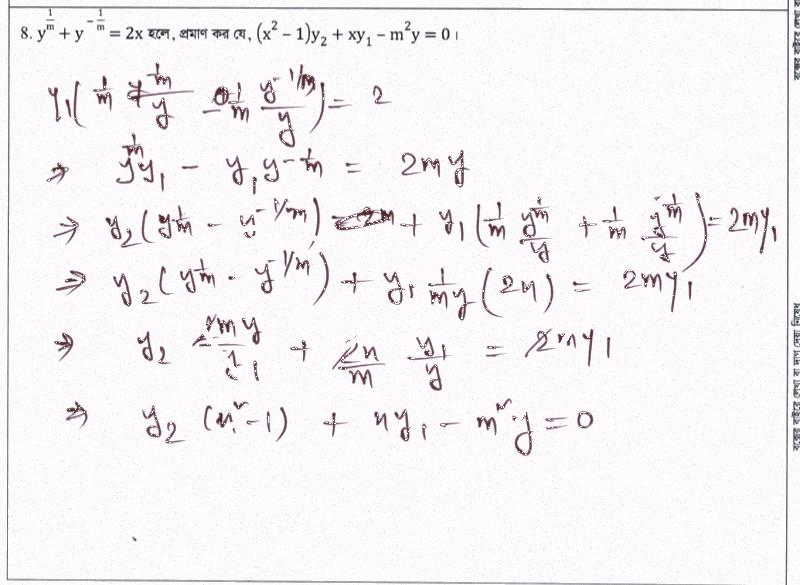 8. y^(1/m) + y^(-1/m) = 2x হলে, প্রমাণ কর যে, (x² − 1)y₂ + xy₁ − m²y = 0।
y₁(1/m y^(1/m)/y − 1/m y^(-1/m)/y) = 2
⇒ y^(1/m) y₁ − y₁ y^(-1/m) = 2my
⇒ y₂(y^(1/m) − y^(-1/m)) + y₁(1/m y^(1/m)/y + 1/m y^(-1/m)/y) = 2my₁
⇒ y₂(y^(1/m) − y^(-1/m)) + y₁ 1/my (2x) = 2my₁
⇒ y₂ 2my/y₁ + 2x/m y₁/y = 2my₁
⇒ y₂ (x² − 1) + xy₁ − m²y = 0